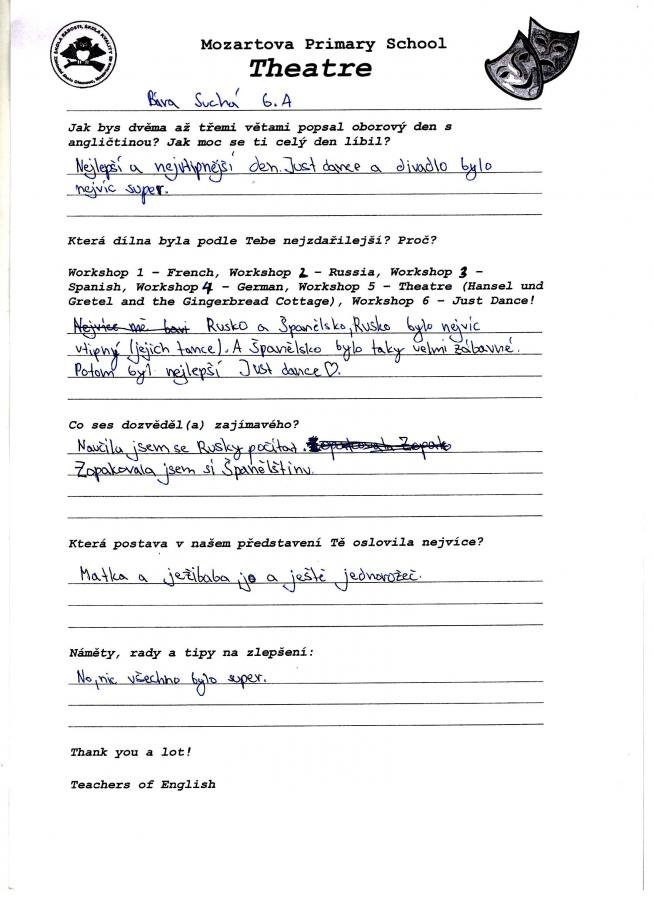 Mozartova Primary School
Theatre
Bára Suchá 6.A
Jak bys dvěma až třemi větami popsal oborový den s
angličtinou? Jak moc se ti celý den líbil?
Nejlepší a nejvtipnější den. Just dance a divadlo bylo
nejvíc super.
Která dílna byla podle Tebe nejzdařilejší? Proč?
Workshop 1 – French, Workshop 2 – Russia, Workshop 3 –
Spanish, Workshop 4 – German, Workshop 5 – Theatre (Hansel und
Gretel and the Gingerbread Cottage), Workshop 6 – Just Dance!
Nejvíce mě baví Rusko a Španělsko, Rusko bylo nejvíc
vtipný (jejich tance). A Španělsko bylo taky velmi zábavné.
Potom byl nejlepší Just dance♡.
Co ses dozvěděl(a) zajímavého?
Naučila jsem se Rusky počítat.
Zopakovala jsem si Španělštinu.
Která postava v našem představení Tě oslovila nejvíce?
Matka a ježibaba, jo a ještě jednorožec.
Náměty, rady a tipy na zlepšení:
No, nic všechno bylo super.
Thank you a lot!
Teachers of English